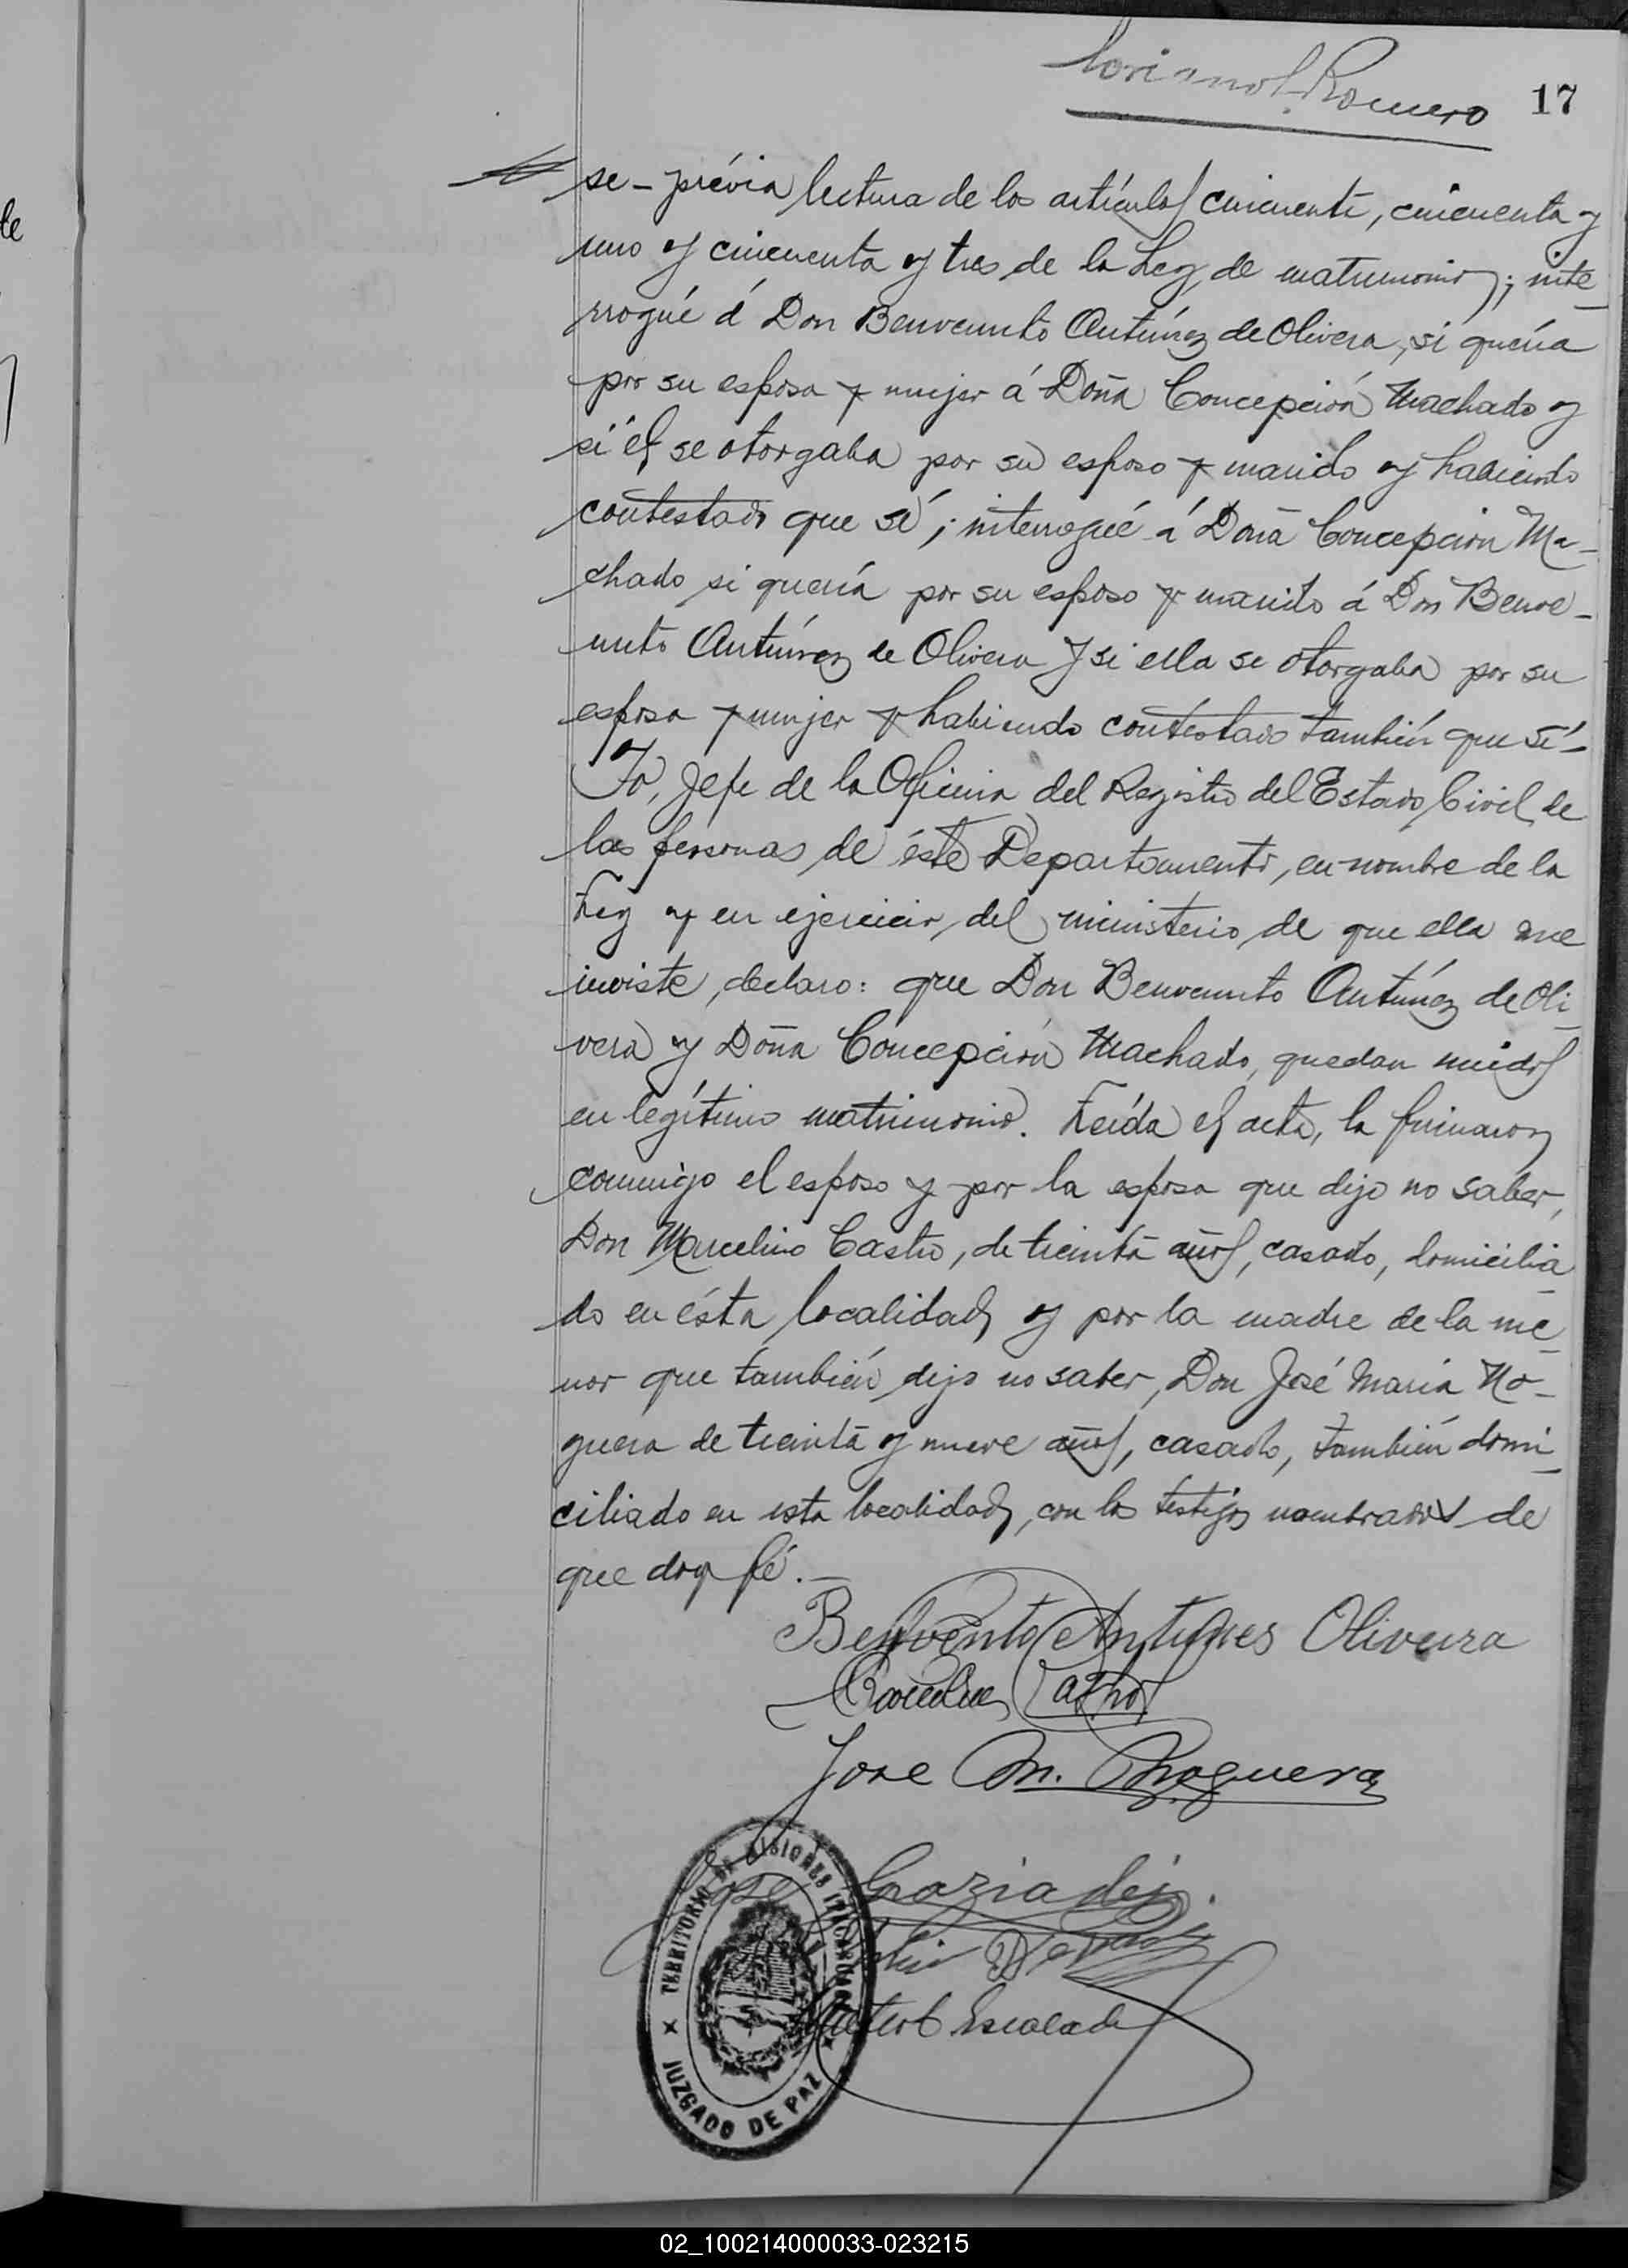 Romero
17
le
se - prévia lectura de los artículos cincuenta, cincuenta y
uno y cincuenta y tres de la Ley de matrimonio; inte-
rrogué á Don Benvenuto Antúnez de Olivera, si quería
por su esposa y mujer á Doña Concepción Machado y
si él se otorgaba por su esposo y marido y habiendo
contestado que sí; interrogué á Doña Concepción Ma-
chado si quería por su esposo y marido á Don Benve-
nuto Antúnez de Olivera y si ella se otorgaba por su
esposa y mujer y habiendo contestado también que sí -
Yo, Jefe de la Oficina del Registro del Estado Civil de
las personas de éste Departamento, en nombre de la
Ley y en ejercicio del ministerio de que ella me
inviste, declaro: que Don Benvenuto Antúnez de Oli-
vera y Doña Concepción Machado, quedan unidos
en legítimo matrimonio. Leída el acta, la firmaron
conmigo el esposo y por la esposa que dijo no saber,
Don Marcelino Castro, de treinta años, casado, domicilia-
do en ésta localidad y por la madre de la me-
nor que también dijo no saber, Don José María No-
guera de treinta y nueve años, casado, también domi-
ciliado en esta localidad, con los testigos nombrados de
que doy fé. -
Benvento Antunes Oliveira
Castro
Jose M. Noguera
Graziadei
Escalada
TERRITORIO DE MISIONES ITACARUARÉ
JUZGADO DE PAZ
02_100214000033-023215